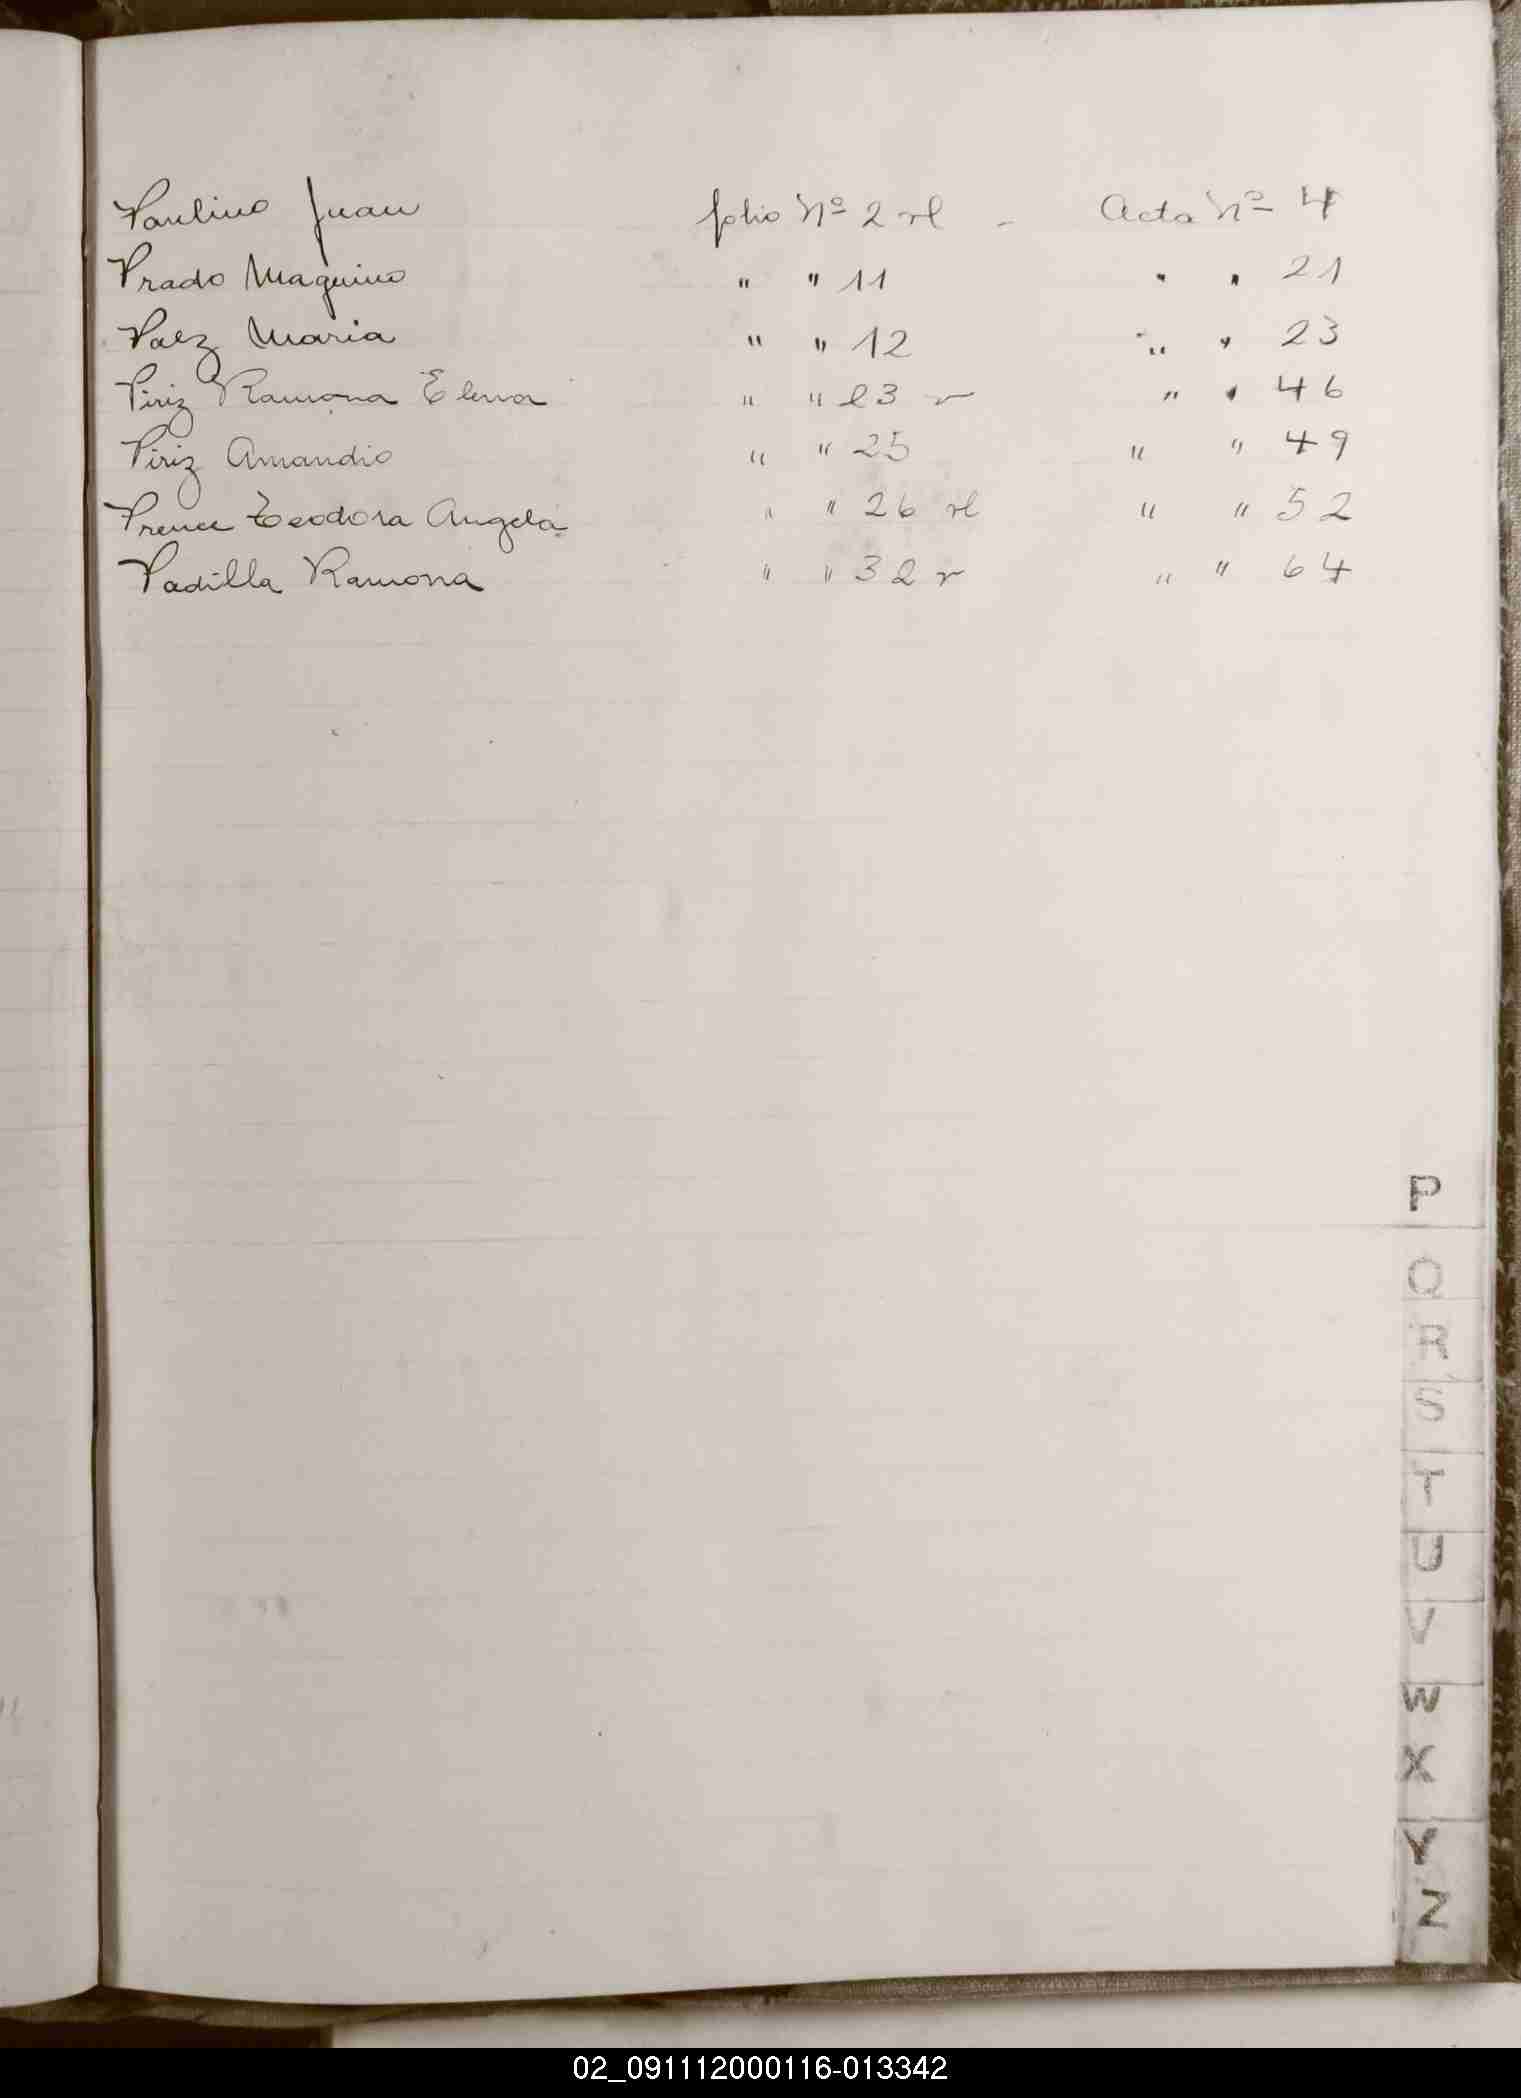 Paulino Juan folio Nº 2 vl - Acta Nº 4
Prado Maquino " " 11 " " 21
Paez Maria " " 12 " " 23
Piriz Ramona Elena " " 23 v " " 46
Piriz Amandio " " 25 " " 49
Teodora Angela " " 26 vl " " 52
Padilla Ramona " " 32 v " " 64
P
Q
R
S
T
U
V
W
X
Y
Z
02_091112000116-013342